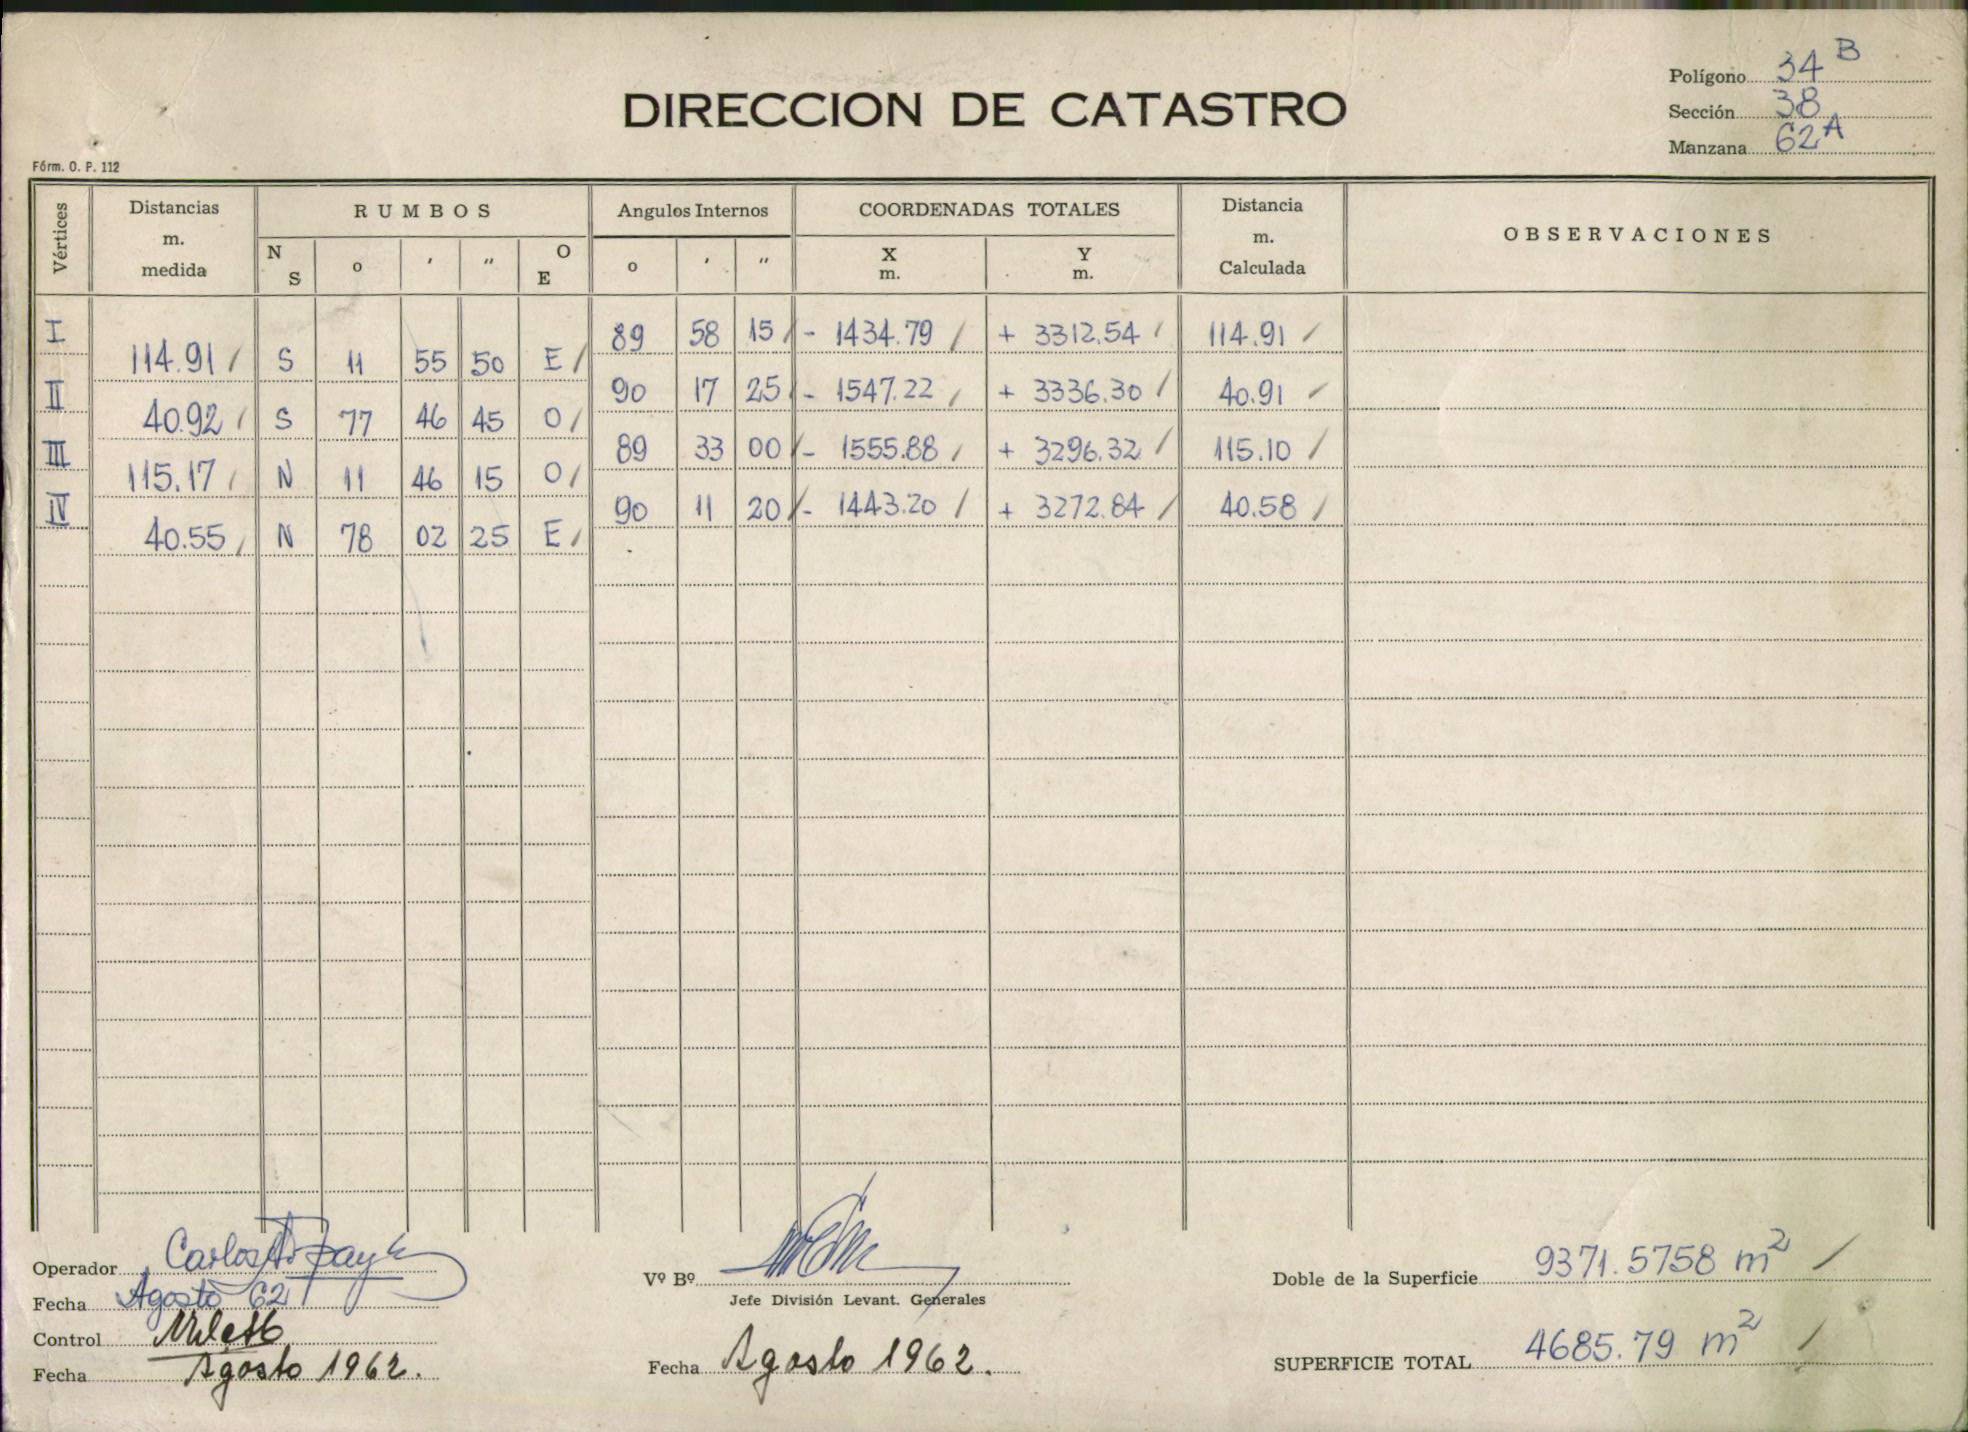 Polígono 34 B
DIRECCION DE CATASTRO
Sección 38
Manzana 62 A
Fórm. O. P. 112
Vértices Distancias m. medida RUMBOS Angulos Internos COORDENADAS TOTALES Distancia m. Calculada OBSERVACIONES
N S o ' " O E o ' " X m. Y m.
I 89 58 15 / - 1434.79 / + 3312.54 / 114.91 /
114.91 / S 11 55 50 E /
II 90 17 25 / - 1547.22 / + 3336.30 / 40.91 /
40.92 / S 77 46 45 O /
III 89 33 00 / - 1555.88 / + 3296.32 / 115.10 /
115.17 / N 11 46 15 O /
IV 90 11 20 / - 1443.20 / + 3272.84 / 40.58 /
40.55 / N 78 02 25 E /
Operador Carlos
Fecha Agosto 62
Control
Fecha Agosto 1962.
Vº Bº
Jefe División Levant. Generales
Fecha Agosto 1962.
Doble de la Superficie 9371.5758 m² /
SUPERFICIE TOTAL 4685.79 m² /